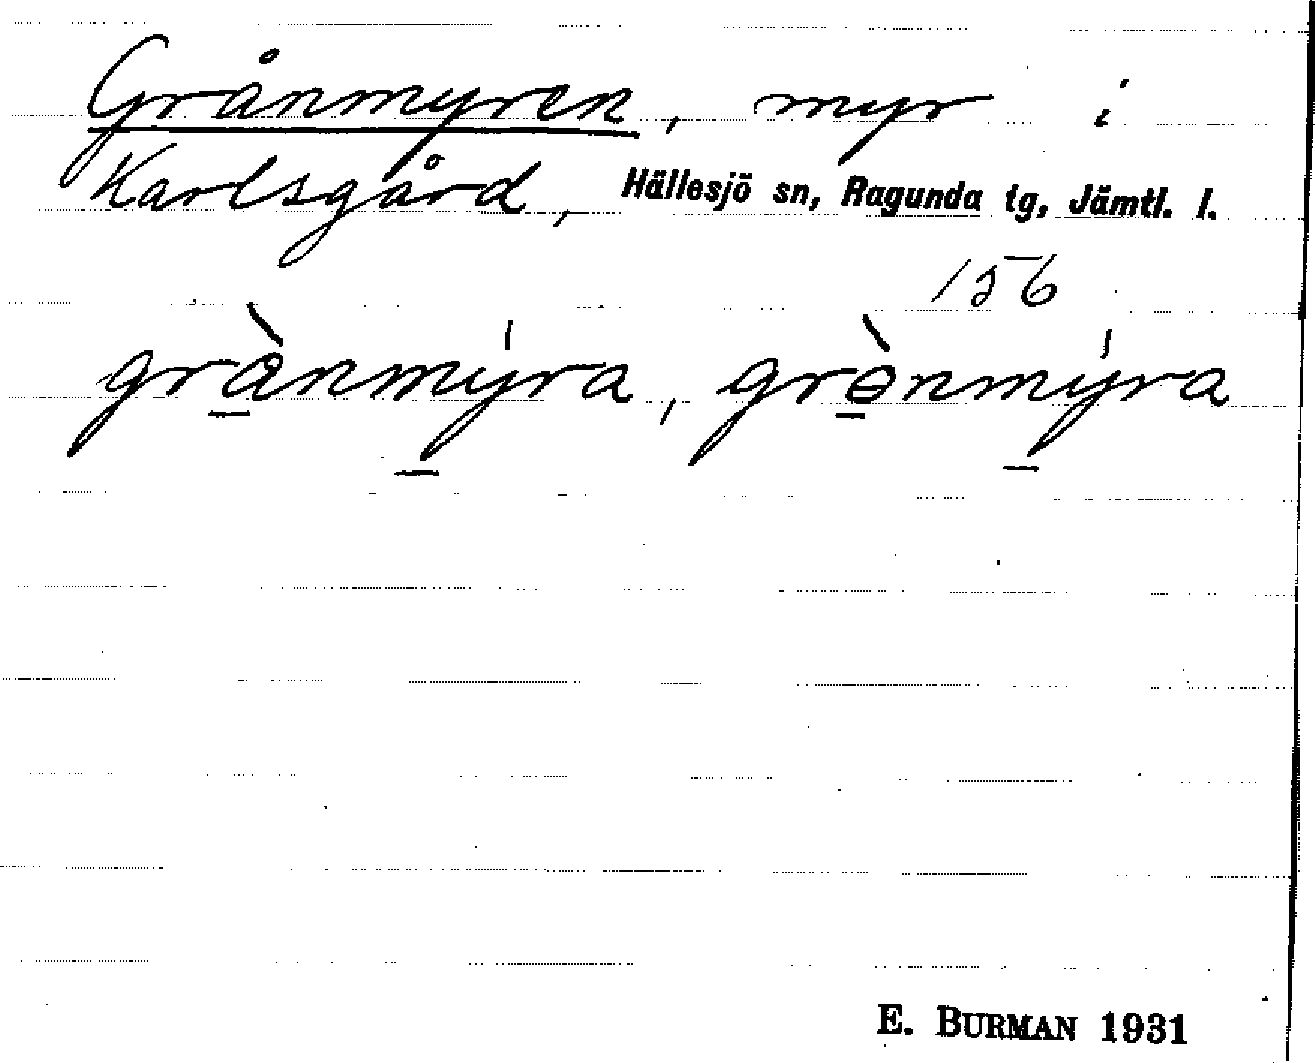 Grånmyren, myr i
Karlsgård, Hällesjö sn, Ragunda tg, Jämtl. l.
156
grànmýra, grənmýra
E. BURMAN 1931